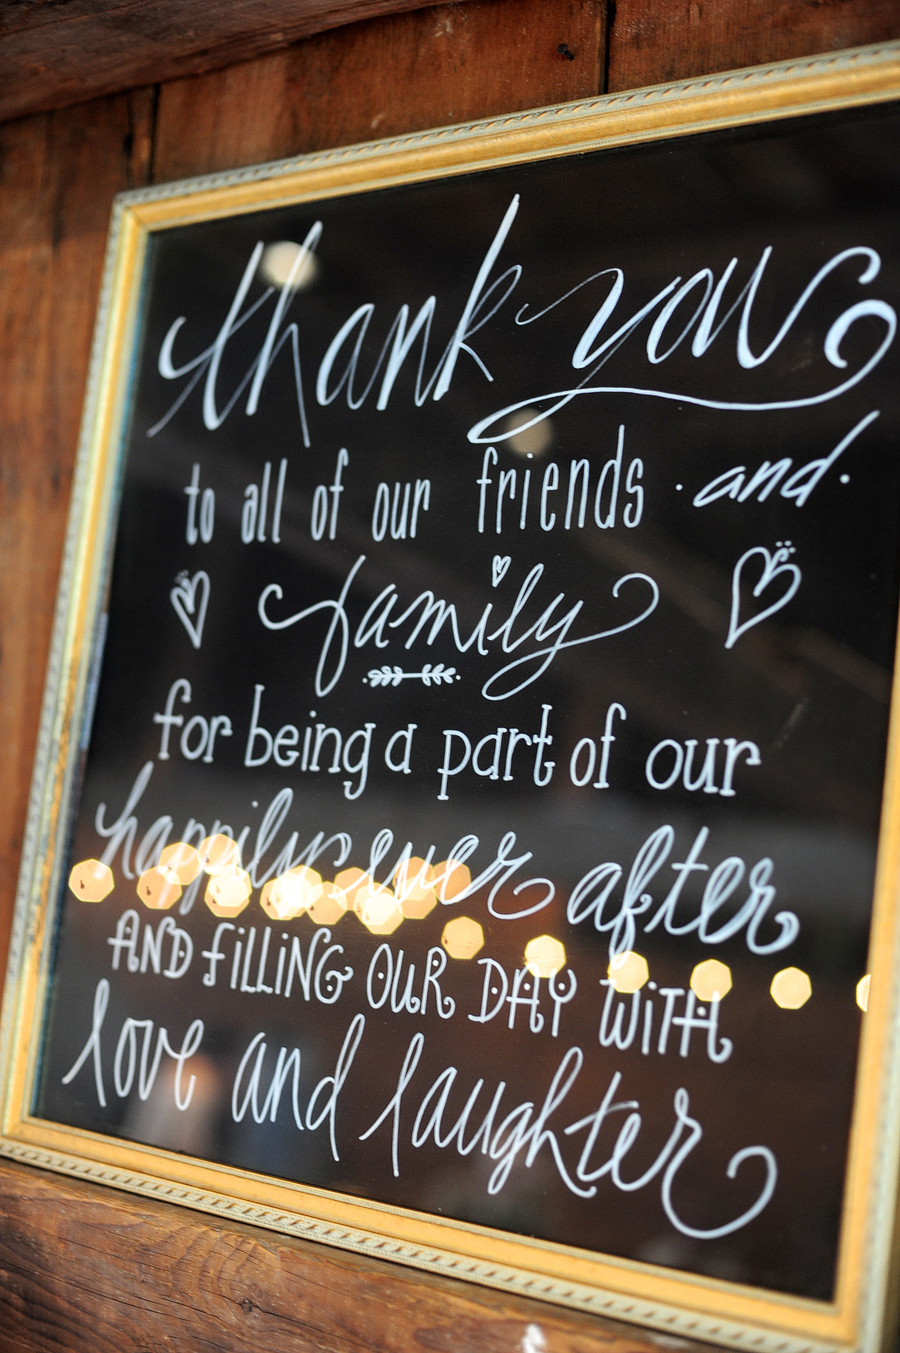 thank you
to all of our friends · and ·
family
for being a part of our
happily ever after
AND FILLING OUR DAY WITH
love and laughter